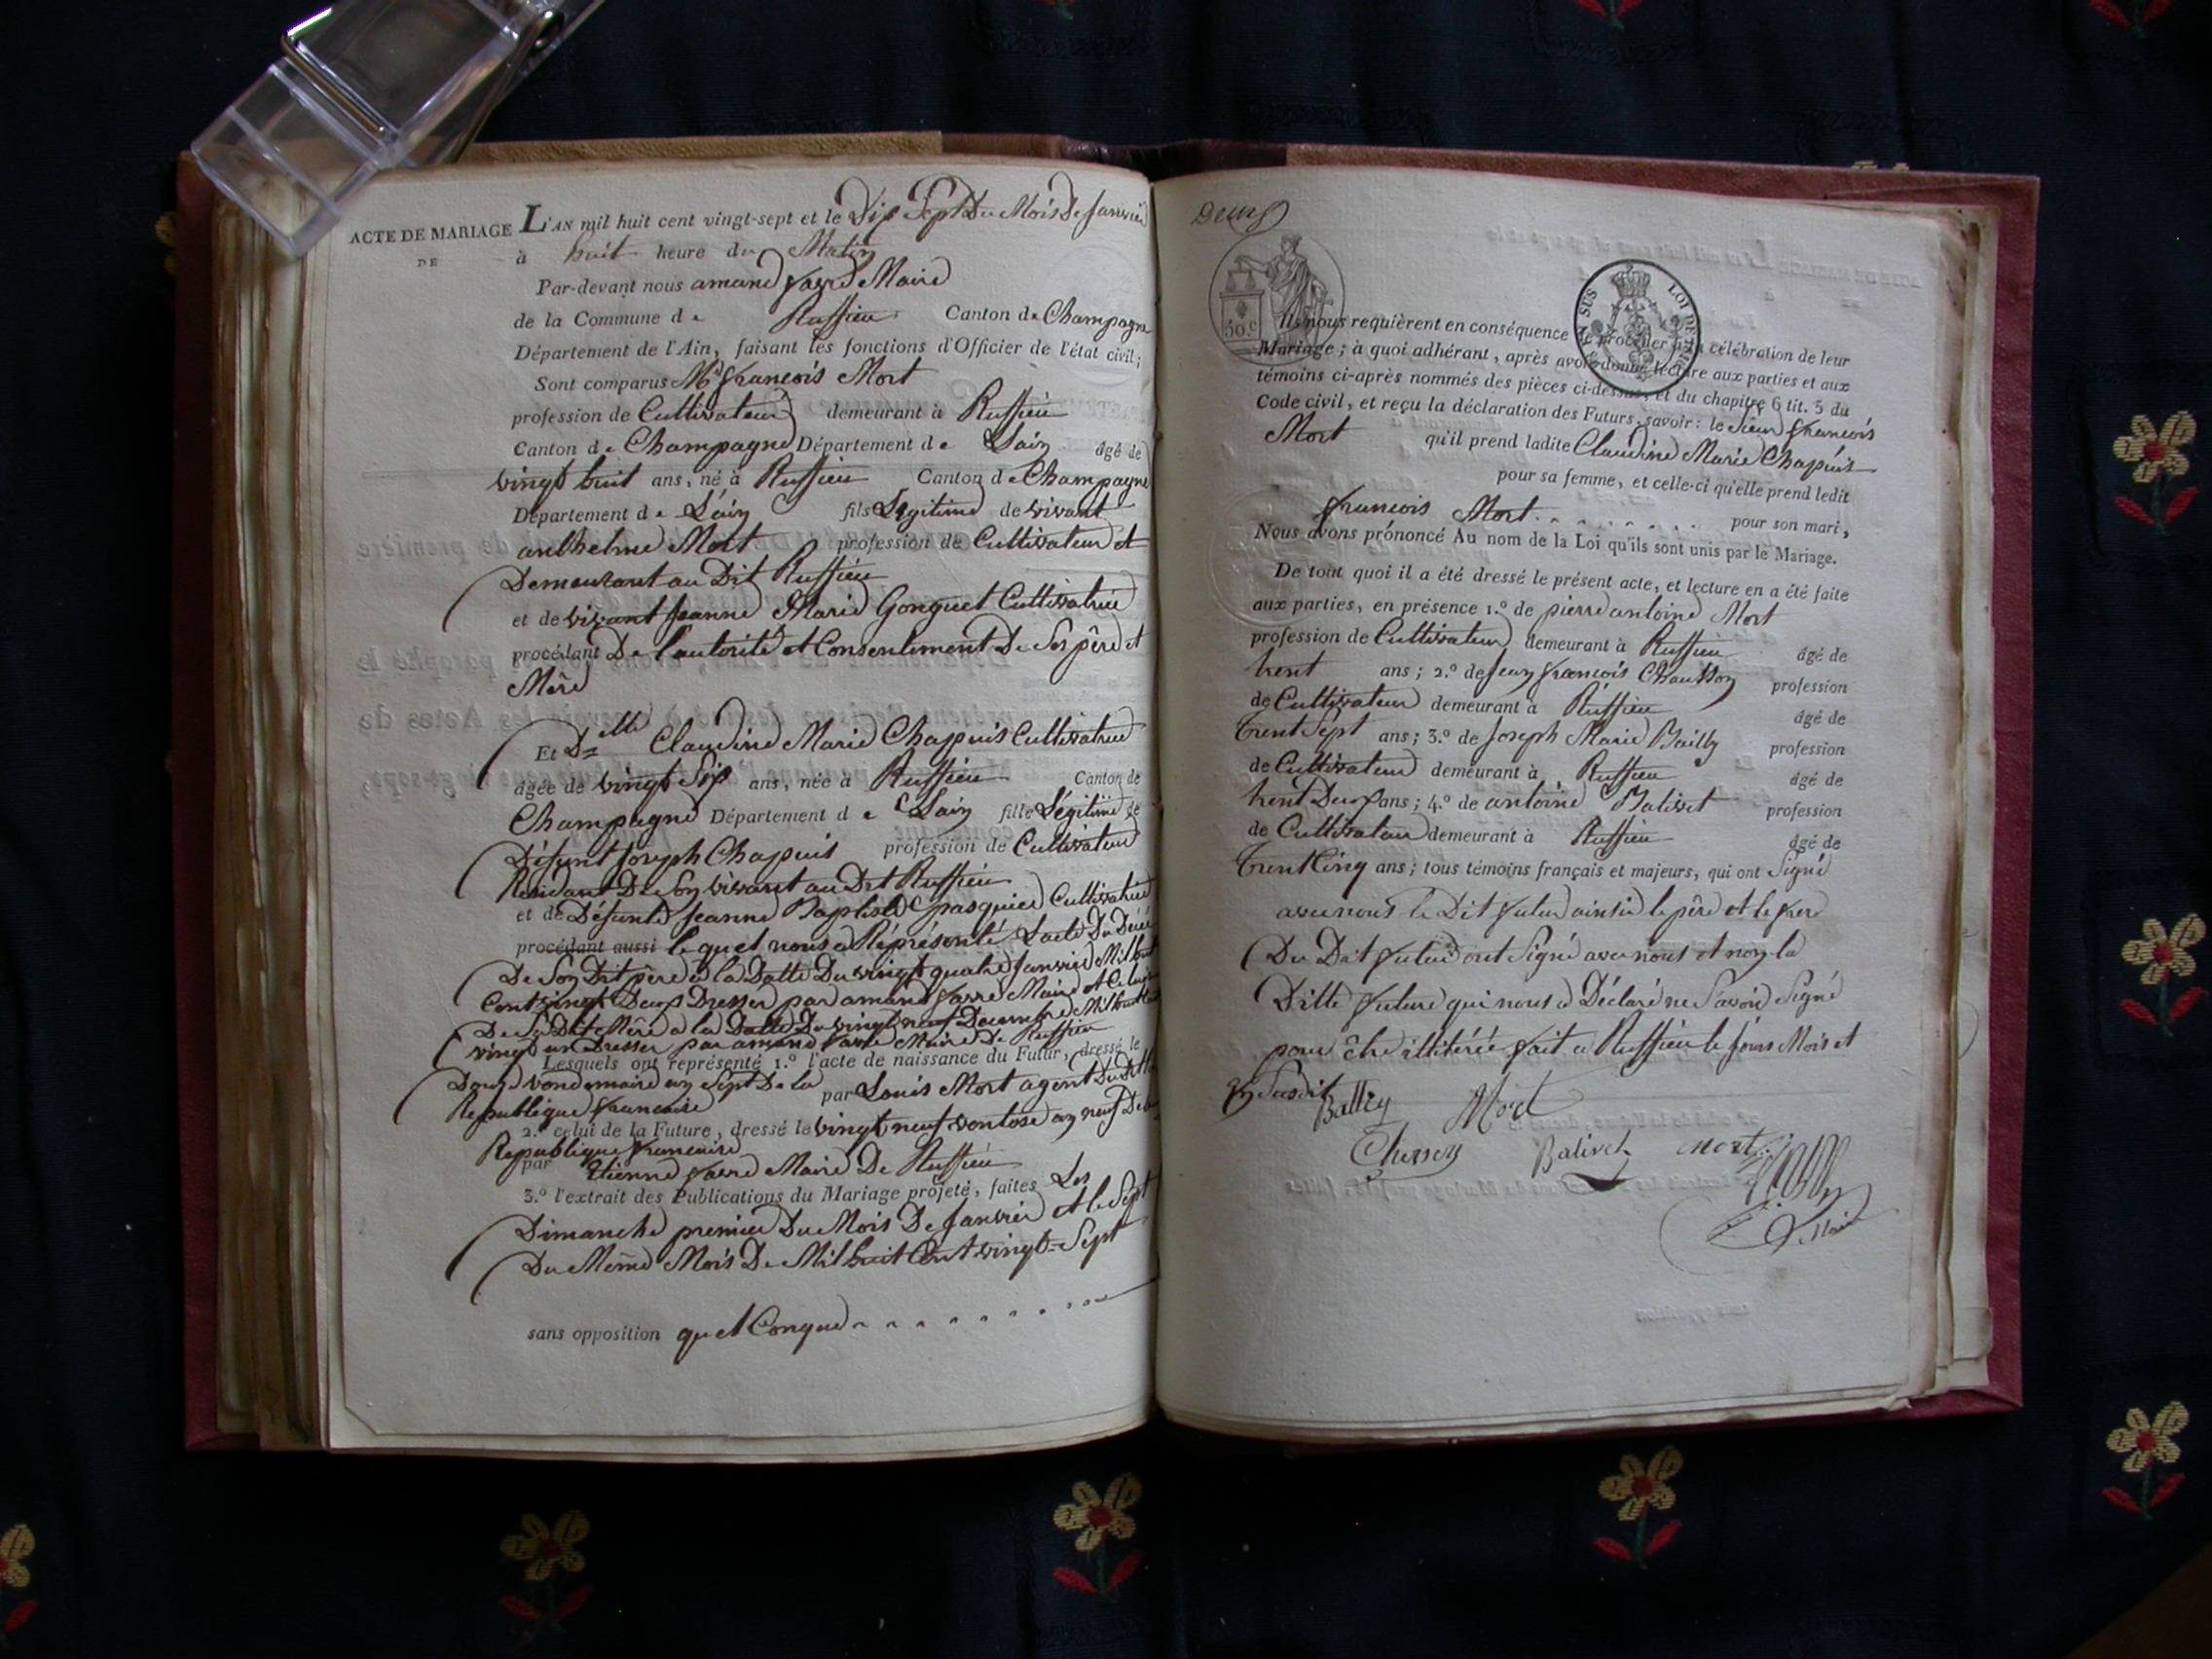 ACTE DE MARIAGE L'AN mil huit cent vingt-sept et le Dix Sept Du Mois De Janvier
DE à huit heure du Matin
Par-devant nous amand favre Maire
de la Commune de Ruffieu Canton de Champagne
Département de l'Ain, faisant les fonctions d'Officier de l'état civil;
Sont comparus Mr francois Mort
profession de Cultivateur demeurant à Ruffieu
Canton de Champagne Département de Lain âgé de
vingt huit ans, né à Ruffieu Canton de Champagne
Département de Lain fils Légitime de vivant
anthelme Mort profession de Cultivateur et
Demeurant au Dit Ruffieu
et de vivant Jeanne Marie Gonguet Cultivatrice
procédant De l'autorité et Consentement De Ses père et
Mère
Et Dlle Claudine Marie Chapuis Cultivatrice
âgée de vingt Six ans, née à Ruffieu Canton de
Champagne Département de Lain fille Légitime de
Défunt Joseph Chapuis profession de Cultivateur
Residant De Son vivant au Dit Ruffieu
et de Défunte Jeanne Baptiste pasquier Cultivatrice
procédant aussi lequel nous a Réprésenté Lacte Du Décé
De Son Dit père à la Datte Du vingt quatre Janvier Mil huit
Cent vingt Deux Dresser par amand favre Maire et Celui
De Sa Dite Mère a la Datte Du vingt neuf Decembre Mil huit Cent
vingt un Dresser par amand favre Maire De Ruffieu
Lesquels ont représenté 1.º l'acte de naissance du Futur, dressé le
Douze vendemaire an Sept De la par Louis Mort agent Du Dit
Republique francaise
2.º celui de la Future, dressé le vingt neuf ventose an neuf De la
Republique francaise
par Etienne favre Maire De Ruffieu
3.º l'extrait des Publications du Mariage projeté, faites Les
Dimanche premier Du Mois De Janvier et le Sept
Du Même Mois De Mil huit Cent vingt-Sept
sans opposition quel Conque
Deux
30.c
LOI DE
Ils nous requièrent en conséquence de procéder à la célébration de leur
Mariage; à quoi adhérant, après avoir donné lecture aux parties et aux
témoins ci-après nommés des pièces ci-dessus, et du chapitre 6 tit. 5 du
Code civil, et reçu la déclaration des Futurs, savoir: le Sieur francois
Mort qu'il prend ladite Claudine Marie Chapuis
pour sa femme, et celle-ci qu'elle prend ledit
francois Mort pour son mari,
Nous avons prononcé Au nom de la Loi qu'ils sont unis par le Mariage.
De tout quoi il a été dressé le présent acte, et lecture en a été faite
aux parties, en présence 1.º de pierre antoine Mort
profession de Cultivateur demeurant à Ruffieu âgé de
trent ans; 2.º de Jean francois profession
de Cultivateur demeurant à Ruffieu âgé de
trent Sept ans; 3.º de Joseph Marie Bailly profession
de Cultivateur demeurant à Ruffieu âgé de
trent Deux ans; 4.º de antoine Balivet profession
de Cultivateur demeurant à Ruffieu âgé de
trent Cinq ans; tous témoins français et majeurs, qui ont Signé
avec nous le Dit futur ainsie le père et le frere
Du Dit futur ont Signé avec nous et non la
Ditte future qui nous a Déclaré ne Savoir Signé
pour être illiterée fait a Ruffieu le Jours Mois et
an Susdit
Bailly Mort
Balivet Mort